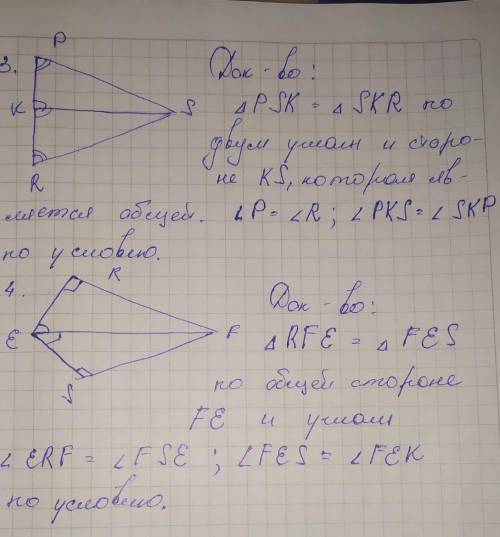 P
3.
Док-во:
K
S
△PSK = △SKR по
двум углам и сторо-
R
не KS, которая яв-
ляется общей. ∠P = ∠R ; ∠PKS = ∠SKP
по условию.
R
4.
Док-во:
E
F
△RFE = △FES
S
по общей стороне
FE и углам
∠ERF = ∠FSE ; ∠FES = ∠FEK
по условию.